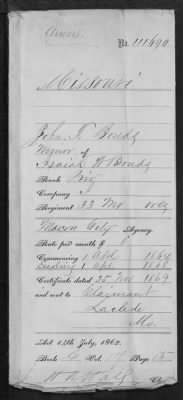 Arrears.
No. 111690
Missouri
John T. Bonds
Minor of
Isaiah H Bonds
Rank Priv
Company
Regiment 33 Mo Vols
Macon City Agency.
Rate per month $ 8.
Commencing 1 Apl 1864
Ending 1 Apl 1868
Certificate dated 25 Nov 1869
and sent to Claimant
Laclede
Mo.
Act 14th July, 1862.
Book C Vol. 7 Page 15
Cl.